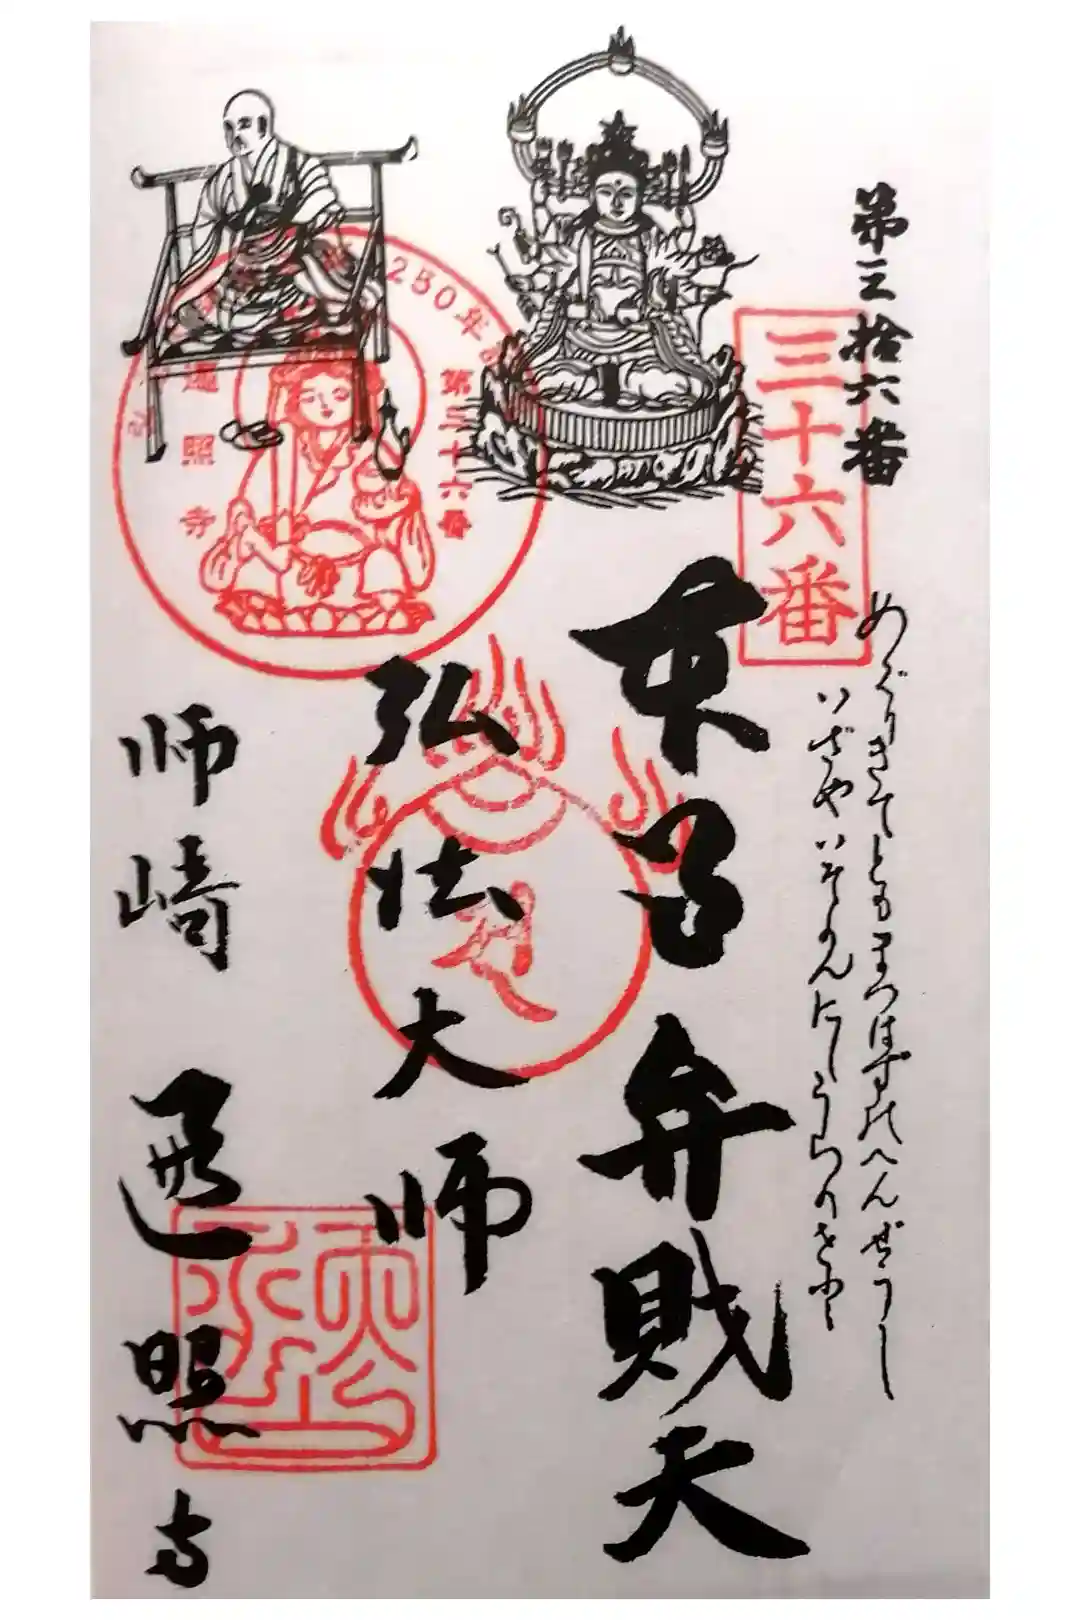 第三拾六番
三十六番
めぐりきてともまつはずのへんぜうし
いざやいそかんにしうらのさと
弁財天
弘法大師
250年
第三十六番
遍照寺
師崎 遍照寺